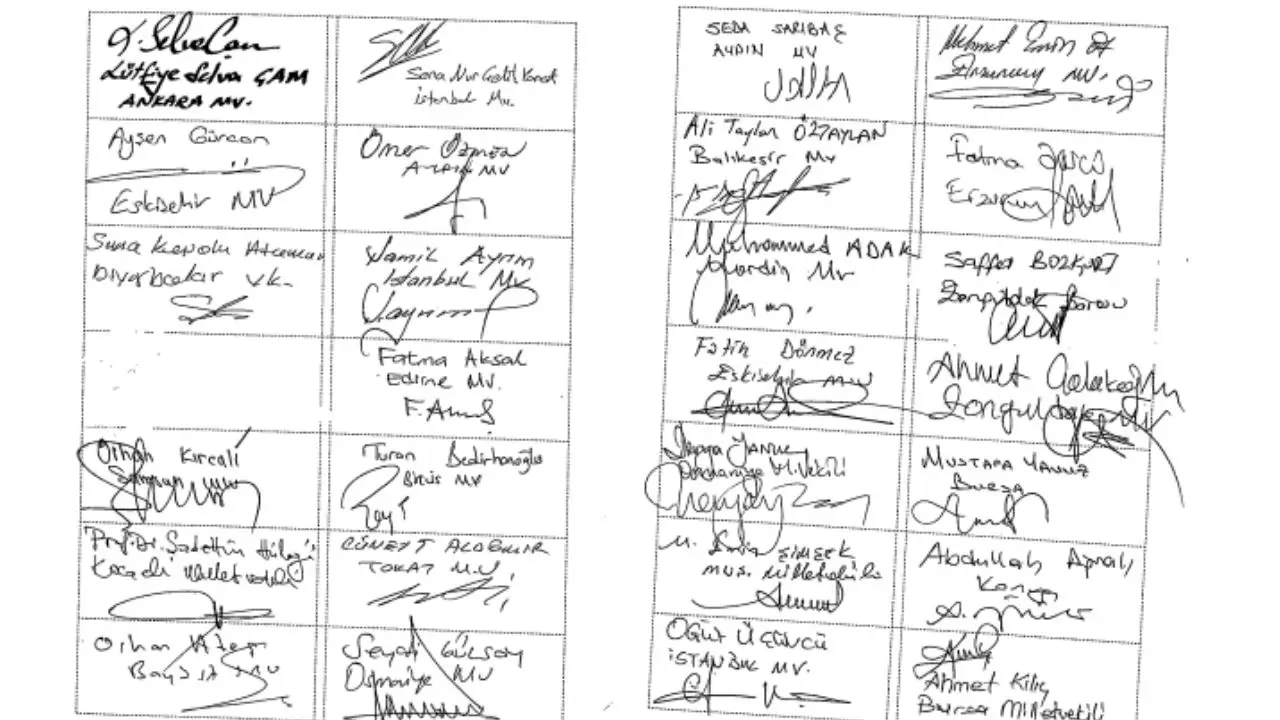 Lütfiye Selva ÇAM
ANKARA MV.
İstanbul Mv.
Ayşen Gürcan
Eskişehir MV
Ömer Özmen
AYDIN MV
Suna Kepolu Ataman
Diyarbakır V.K.
Şamil Ayrım
İstanbul Mv
Fatma Aksal
Edirne MV.
Orhan Kırcalı
Samsun
Turan Bedirhanoğlu
Bitlis MV
Prof. Dr. Sadettin Hülagü
Kocaeli Milletvekili
CÜNEYT ALDEMİR
TOKAT M.V
Orhan Ateş
Bayburt MV
Seydi GÜLSOY
Osmaniye MV
SEDA SARIBAŞ
AYDIN MV
Mehmet Emin Öz
Erzurum MV.
Ali Taylan ÖZTAYLAN
Balıkesir Mv
Fatma Öncü
Erzurum
Muhammed ADAK
Mardin Mv
Saffet BOZKURT
Zonguldak
Fatih Dönmez
Eskişehir
Ahmet Çolakoğlu
Zonguldak MV
Derya YANIK
Osmaniye M.Vekili
MUSTAFA YAVUZ
BURSA
M. Emin ŞİMŞEK
MUŞ Milletvekili
Abdullah
Konya
OĞUZ ÜÇÜNCÜ
İSTANBUL MV.
Ahmet Kılıç
Bursa Milletvekili